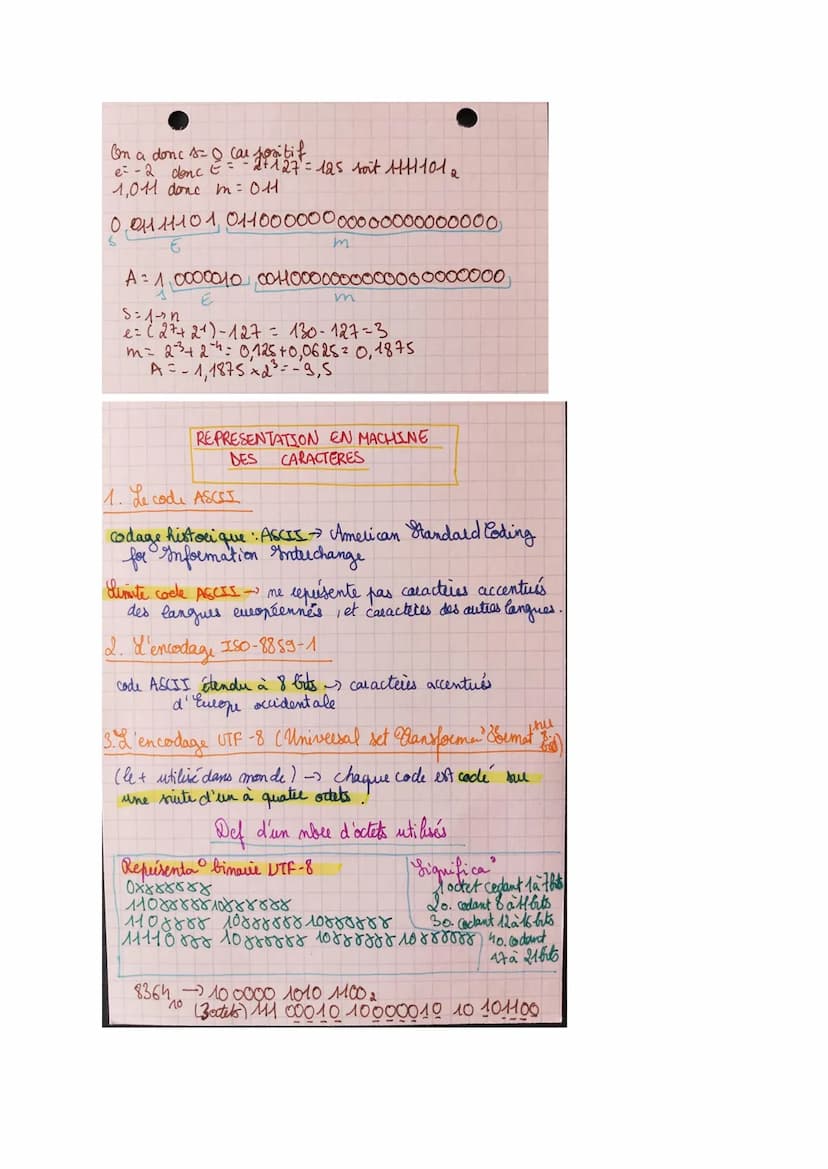 On a donc s= 0 car positif
e=-2 donc E = -2+127 = 125 soit 1111101₂
1,011 donc m = 011
0 01111101 01100000000000000000000
s E m
A = 1 10000010 00110000000000000000000
s E m
S = 1 → n
e = (2⁷+ 2¹) - 127 = 130 - 127 = 3
m = 2⁻³+ 2⁻⁴ = 0,125 + 0,0625 = 0,1875
A = - 1,1875 × 2³ = - 9,5
REPRESENTATION EN MACHINE
DES CARACTERES
1. Le code ASCII
codage historique : ASCII → American Standard Coding
for Information Interchange
Limite code ASCII → ne représente pas caractères accentués
des langues européennes, et caractères des autres langues.
2. L'encodage ISO-8859-1
code ASCII étendu à 8 bits → caractères accentués
d'Europe occidentale
3. L'encodage UTF-8 (Universal set Transforma° Format sur 8 bits)
(le + utilisé dans monde) → chaque code est codé sur
une suite d'un à quatre octets.
Def d'un nbre d'octets utilisés
Représenta° binaire UTF-8 Significa°
0xxxxxxx 1 octet codant 1 à 7 bits
110xxxxx 10xxxxxx 2 o. codant 8 à 11 bits
110xxxx 10xxxxxx 10xxxxxx 3 o. codant 12 à 16 bits
11110xxx 10xxxxxx 10xxxxxx 10xxxxxx 4 o. codant
17 à 21 bits
8364₁₀ → 10 0000 1010 1100₂
(3 octets) 111 00010 10000010 10 101100